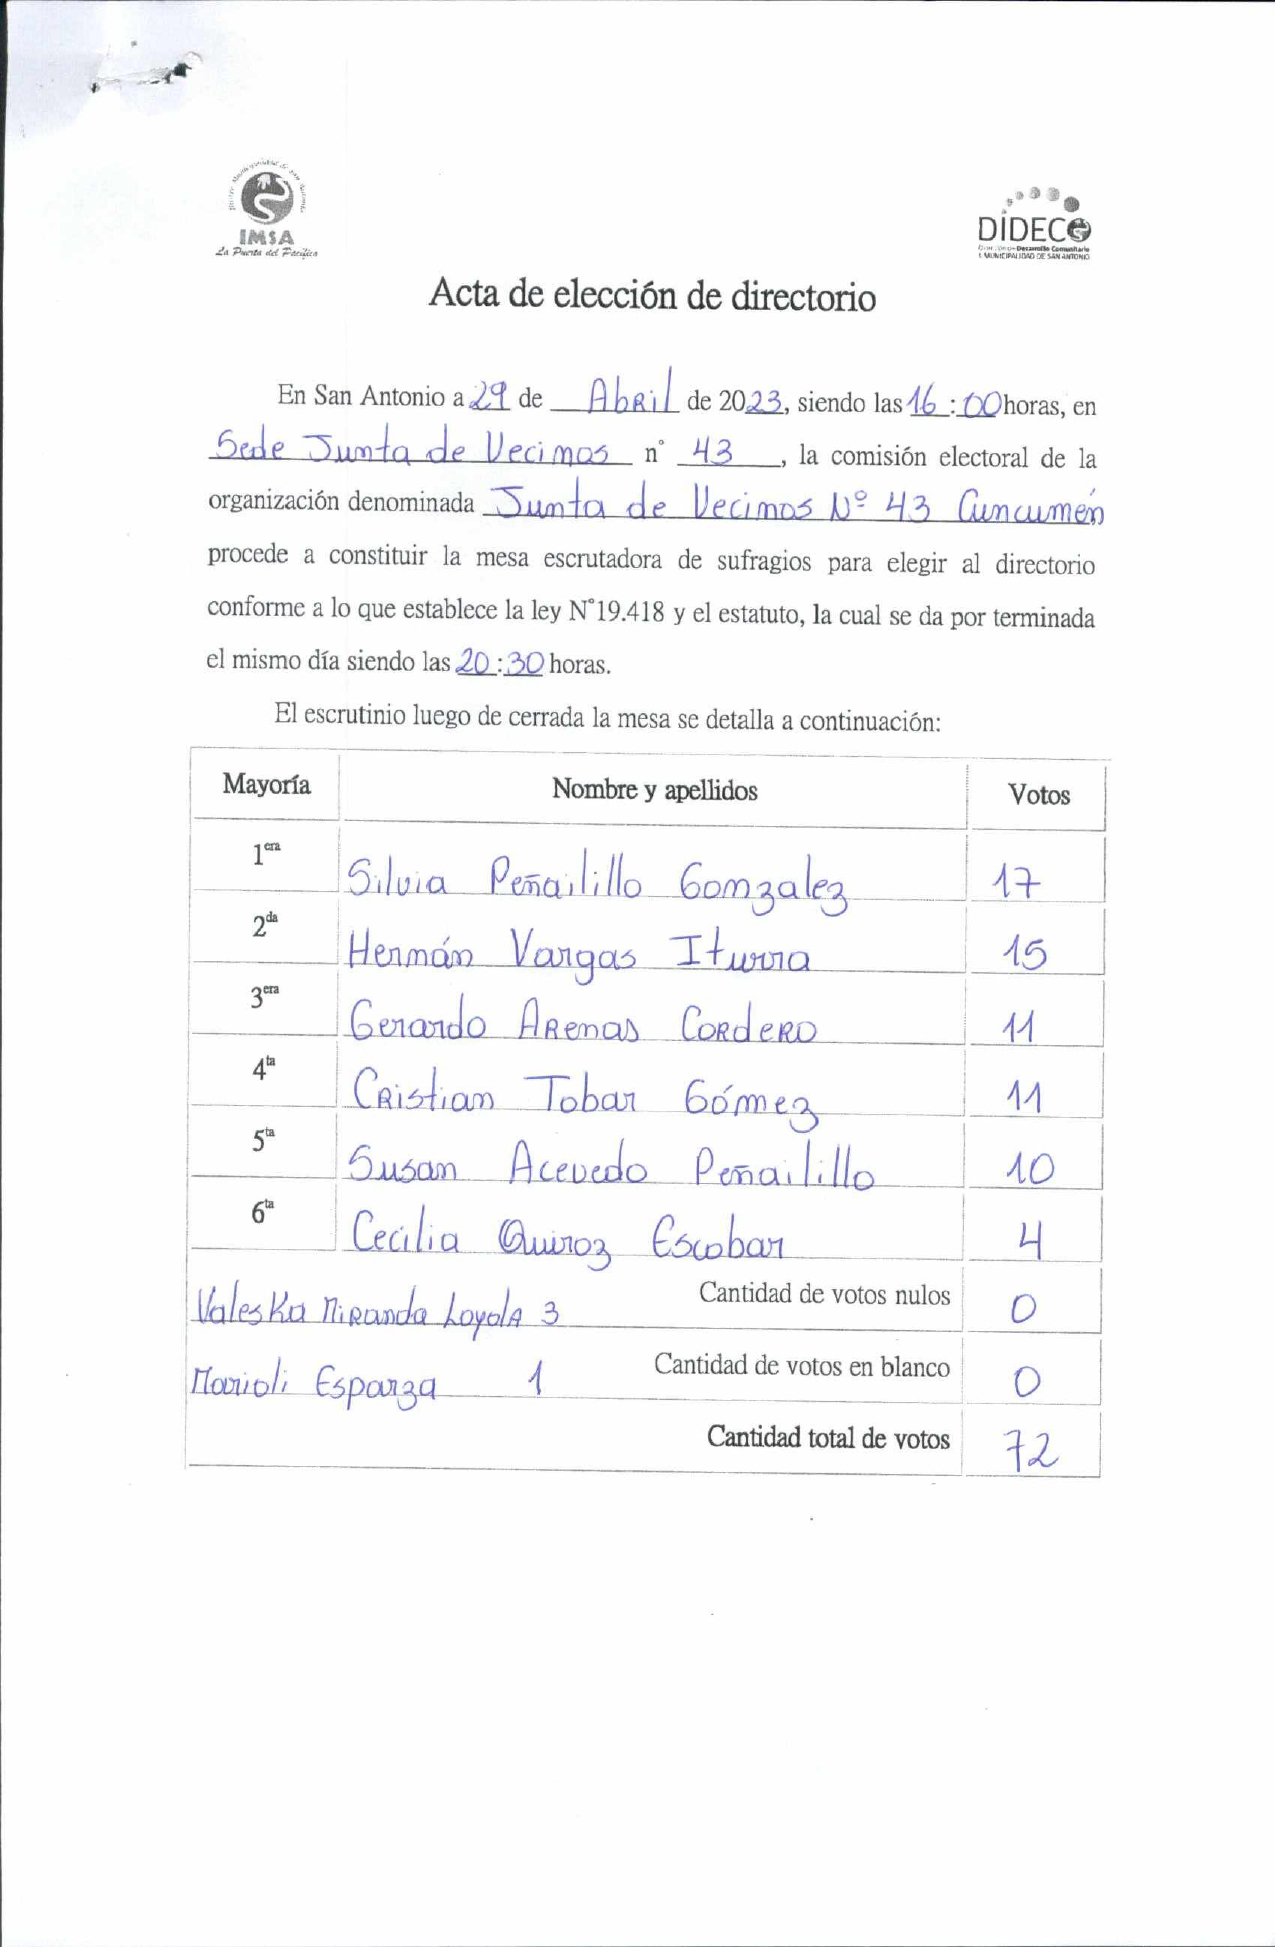 IMSA
La Puerta del Pacífico
DIDECO
Desarrollo Comunitario
I. MUNICIPALIDAD DE SAN ANTONIO
Acta de elección de directorio
En San Antonio a 29 de Abril de 2023, siendo las 16:00 horas, en
Sede Junta de Vecinos n° 43, la comisión electoral de la
organización denominada Junta de Vecinos Nº 43 Cuncumén
procede a constituir la mesa escrutadora de sufragios para elegir al directorio
conforme a lo que establece la ley N°19.418 y el estatuto, la cual se da por terminada
el mismo día siendo las 20:30 horas.
El escrutinio luego de cerrada la mesa se detalla a continuación:
Mayoría Nombre y apellidos Votos
1era Silvia Peñailillo Gonzalez 17
2da Hernán Vargas Iturra 15
3era Gerardo Arenas Cordero 11
4ta Cristian Tobar Gómez 11
5ta Susan Acevedo Peñailillo 10
6ta Cecilia Quiroz Escobar 4
Valeska Miranda Loyola 3 Cantidad de votos nulos 0
Marioli Esparza 1 Cantidad de votos en blanco 0
Cantidad total de votos 72